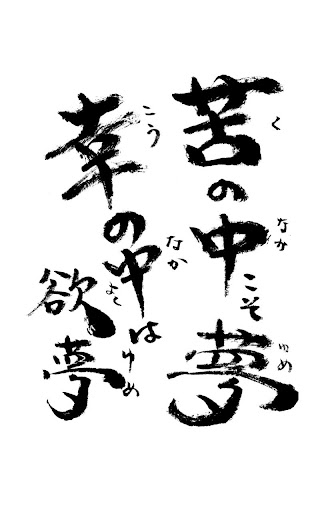 苦の中こそ夢
く
なか
ゆめ
幸の中は欲夢
こう
なか
よく
ゆめ